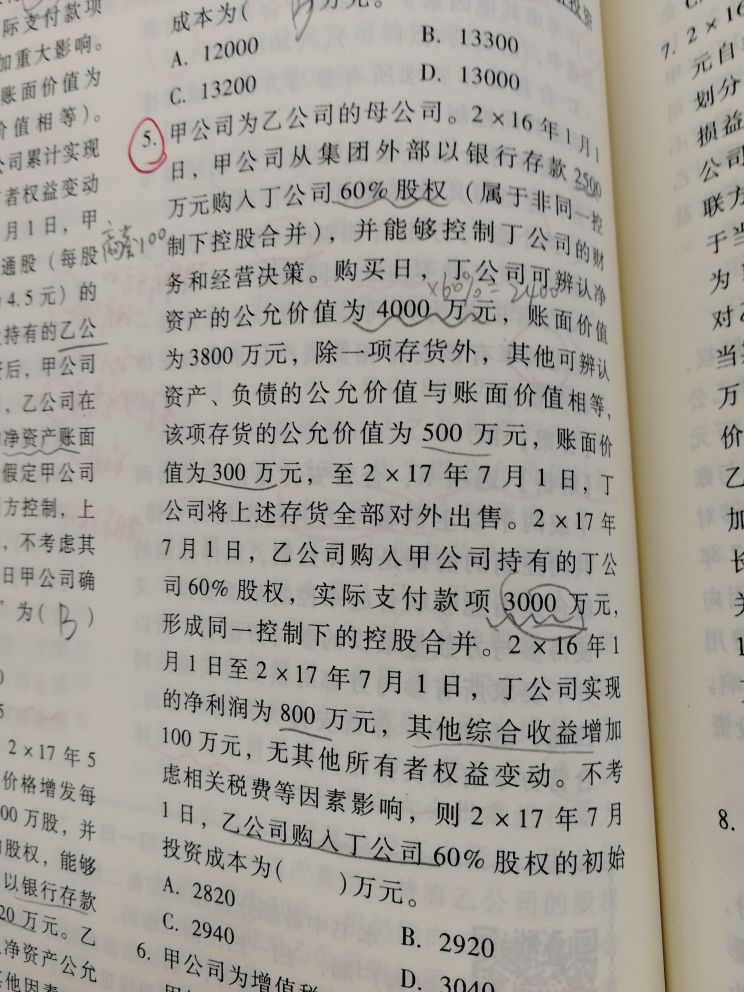 际支付款项
加重大影响。
账面价值为
价值相等)。
公司累计实现
有者权益变动
月1日,甲
通股(每股
4.5元)的
持有的乙公
后,甲公司
,乙公司在
净资产账面
假定甲公司
方控制,上
,不考虑其
日甲公司确
为(B)
2×17年5
价格增发每
00万股,并
股权,能够
以银行存款
20万元。乙
净资产公允
其他因素
成本为( )万元。
A. 12000
B. 13300
C. 13200
D. 13000
5. 甲公司为乙公司的母公司。2×16年1月1
日,甲公司从集团外部以银行存款2500
万元购入丁公司60%股权(属于非同一控
制下控股合并),并能够控制丁公司的财
商誉100
务和经营决策。购买日,丁公司可辨认净
×60%=2400
资产的公允价值为4000万元,账面价值
为3800万元,除一项存货外,其他可辨认
资产、负债的公允价值与账面价值相等,
该项存货的公允价值为500万元,账面价
值为300万元,至2×17年7月1日,丁
公司将上述存货全部对外出售。2×17年
7月1日,乙公司购入甲公司持有的丁公
司60%股权,实际支付款项3000万元,
形成同一控制下的控股合并。2×16年1
月1日至2×17年7月1日,丁公司实现
的净利润为800万元,其他综合收益增加
100万元,无其他所有者权益变动。不考
虑相关税费等因素影响,则2×17年7月
1日,乙公司购入丁公司60%股权的初始
投资成本为( )万元。
A. 2820
B. 2920
C. 2940
D. 3040
6. 甲公司为增值税
7. 2×16
元自
划分
损益
公司
联方
于当
为1
对乙
当
万
价
乙
加
8.